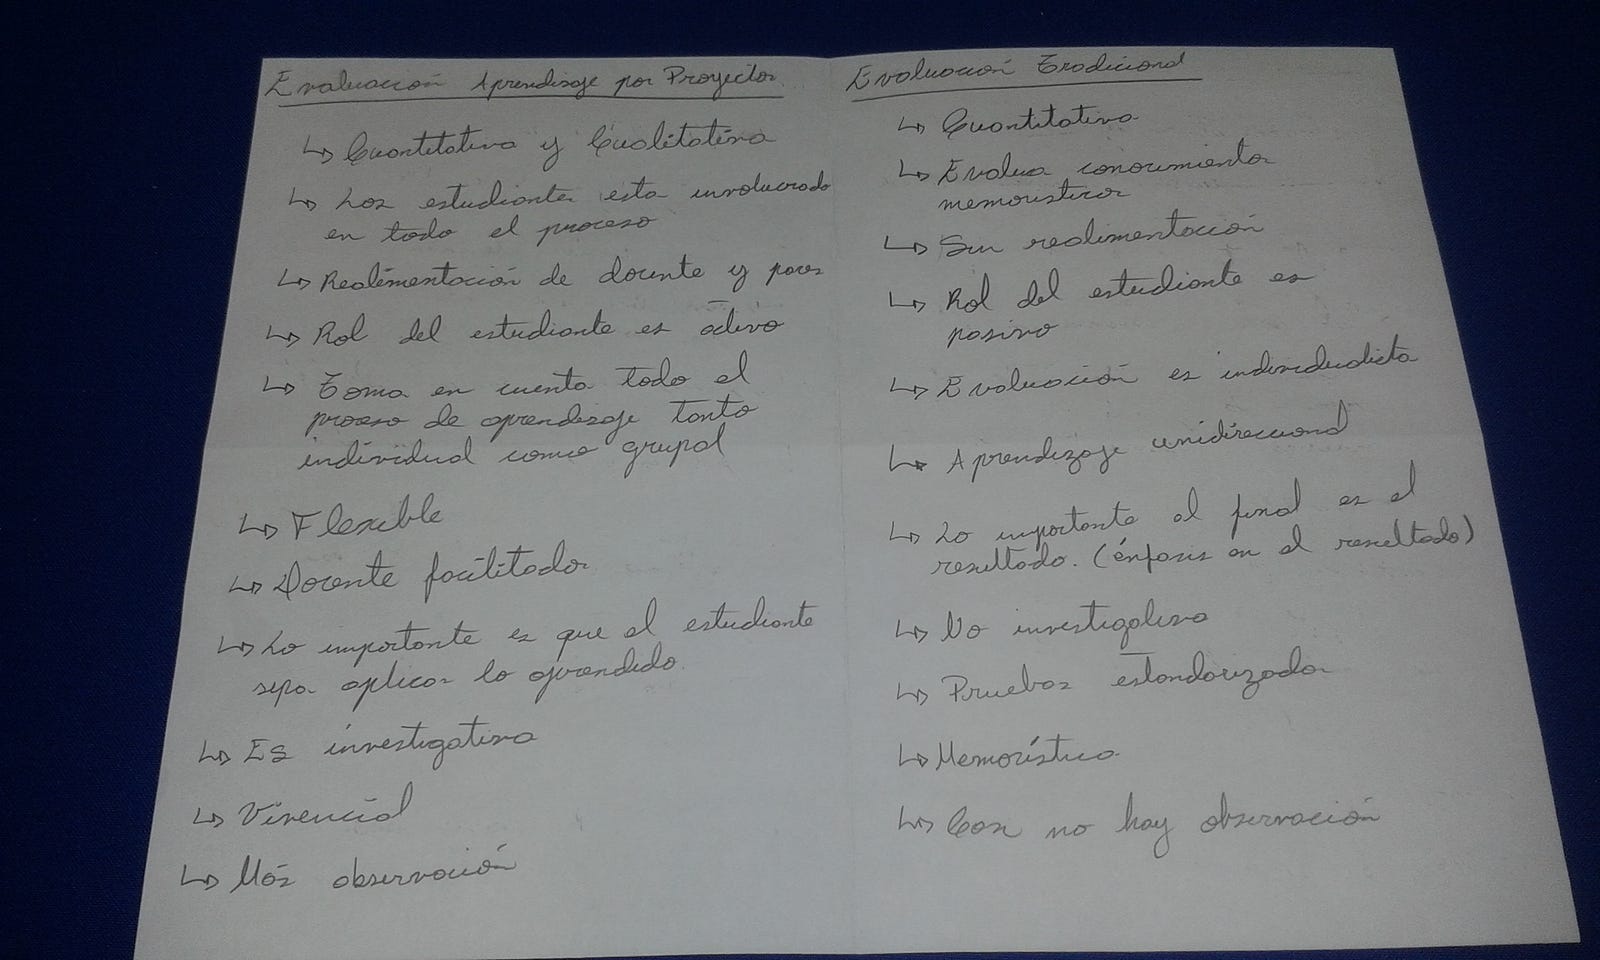 Evaluación Aprendisaje por Proyectos
↳ Cuantitativa y Cualitativa
↳ Los estudiantes esta involucrado
en todo el proceso
↳ Realimentación de docente y pares
↳ Rol del estudiante es activo
↳ Toma en cuenta todo el
proceso de aprendisaje tanto
individual como grupal
↳ Flexible
↳ Docente facilitador
↳ Lo importante es que el estudiante
sepa aplicar lo aprendido.
↳ Es investigativa
↳ Vivencial
↳ Más observación
Evaluación Tradicional
↳ Cuantitativa
↳ Evalua conocimientos
memoristicos
↳ Sin realimentación
↳ Rol del estudiante es
pasivo
↳ Evaluación es individualista
↳ Aprendizaje unidireccional
↳ Lo importante al final es el
resultado. (énfasis en el resultado)
↳ No investigativa
↳ Pruebas estandarizadas
↳ Memorística
↳ Casi no hay observación